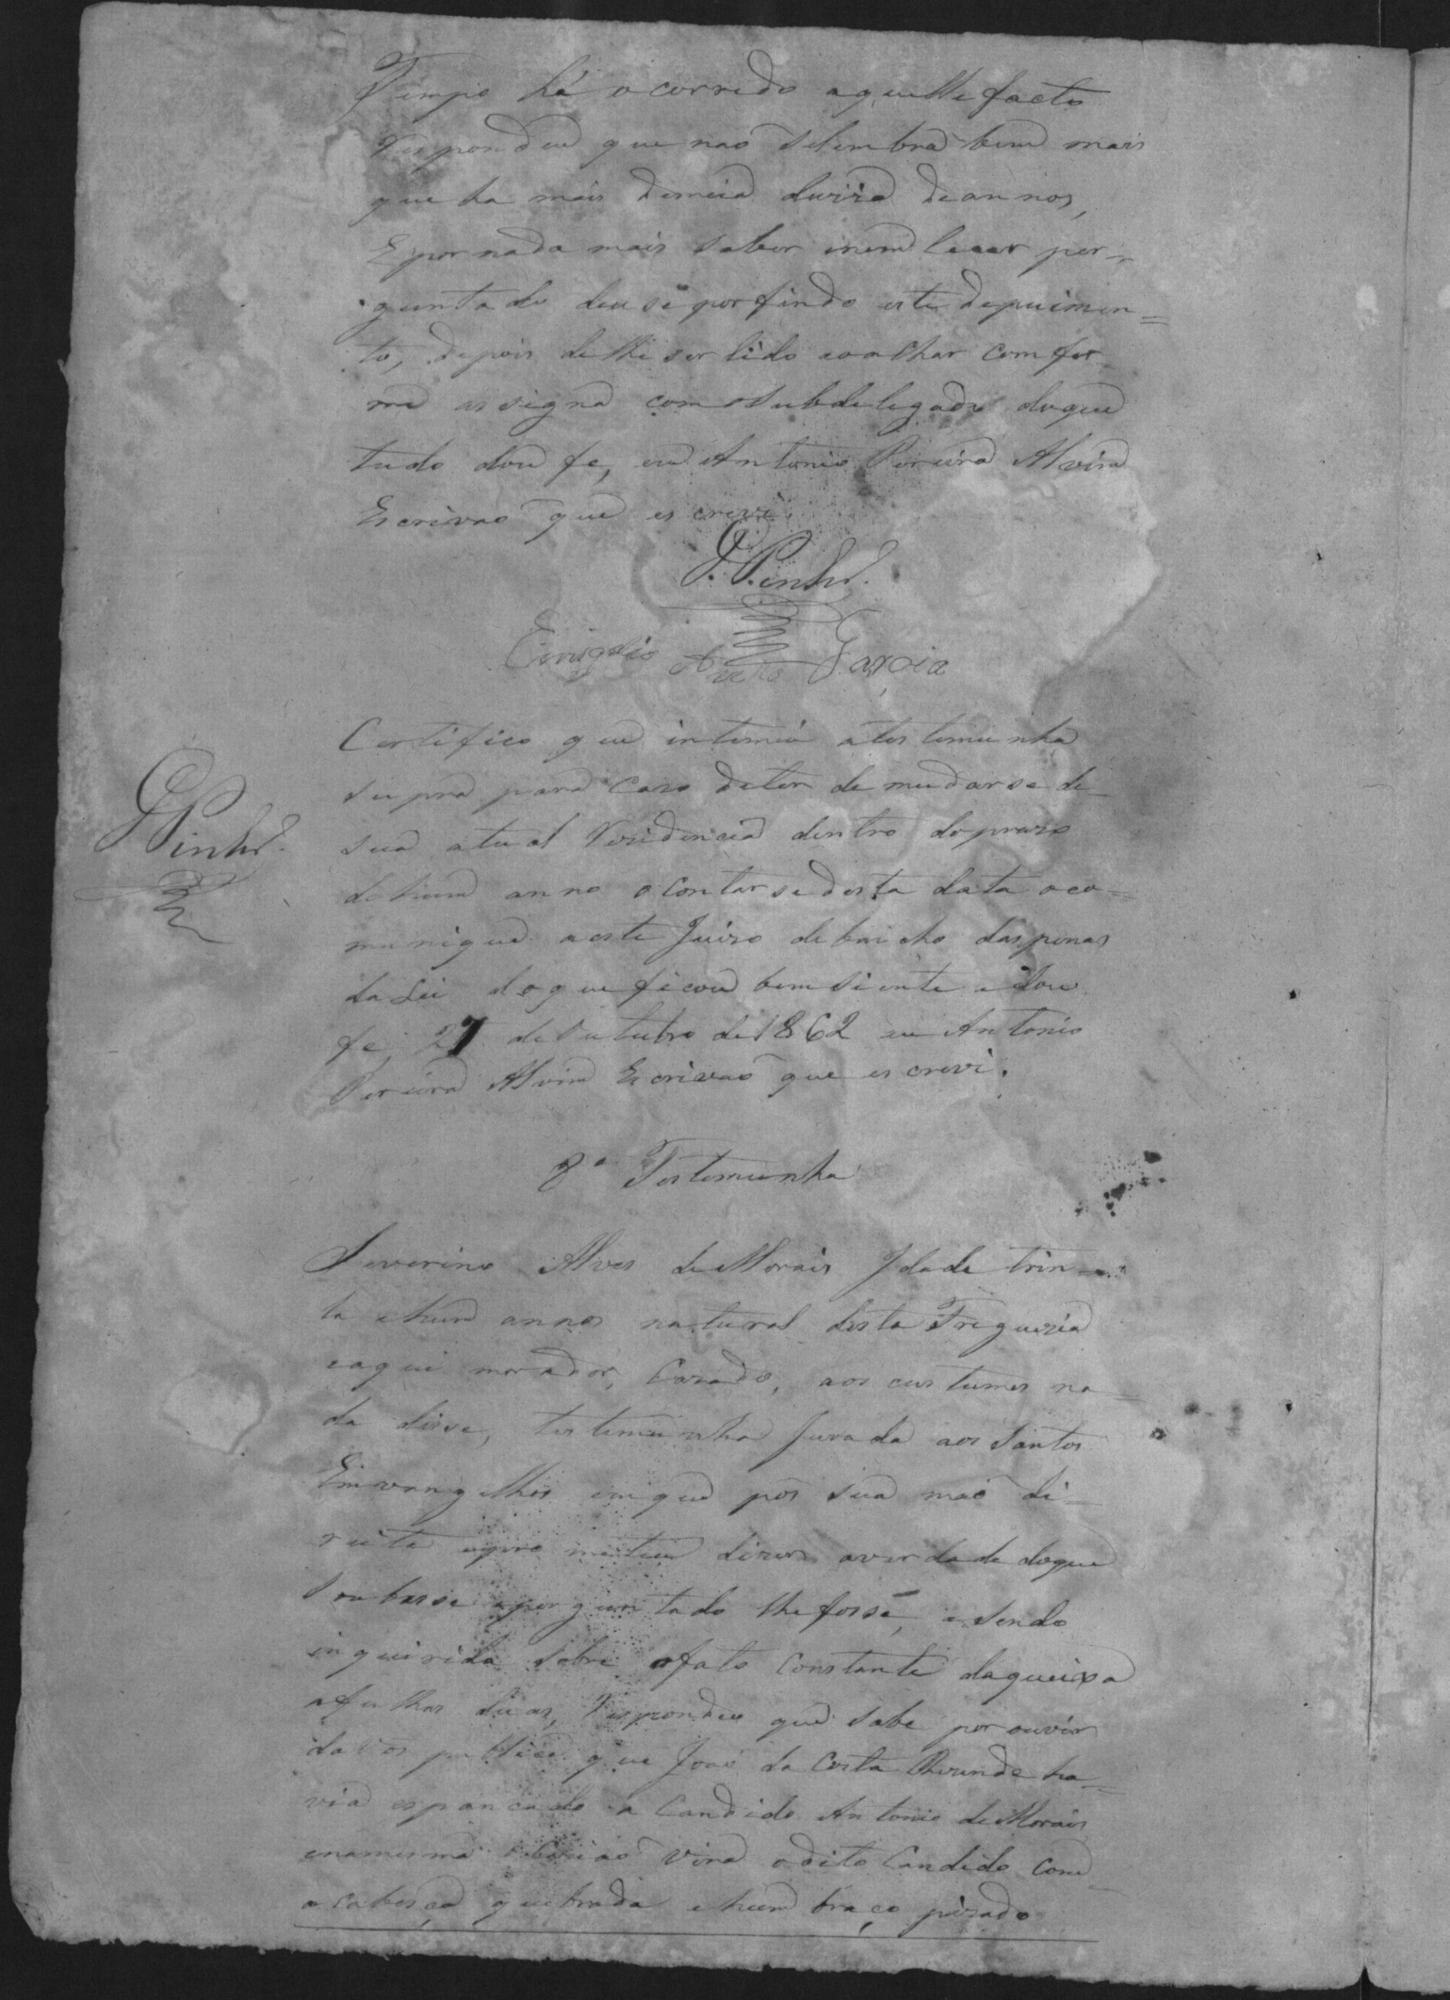 Tempo há ocorrido aquelle facto
Respondeu que naõ selembra bem mais
que ha mais demeia duzia deannos,
Epor nada mais saber enem lecer per-
guntado deu sé porfindo este depuimen=
to, depois delhe ser lido eoachar comfor
me assigna com oSubdelegado doque
tudo dou fe, eu Antonio Pereira Alvim
Escrivaõ que escrevi.
P. Pinhr.
Garcia
Certifico que intemei atestemunha
supra para cazo deter de mudarse de
sua atual Residencia dentro doprazo
dehum anno acontarse desta data oco=
munique aeste Juizo debaicho daspenas
daLei doque ficou bemsiente edou
fe, 27 deOutubro de1862 eu Antonio
Pereira Alvim Escrivaõ que escrevi.
PPinhr.
8ª Testemunha
Severino Alves deMorais Idade trin=
ta ehum annos natural desta Freguezia
eaqui morador, Cazado, aos custumes na
da disse, testemunha Jurada aos Santos
Emvangelhos emque pos sua maõ di=
reita eprometeu dizer averdade doque
Soubesse eperguntado lhefosse, esendo
inquirida sobre ofato Constante daqueixa
afolhas duas, Respondeu que sabe por ouvir
davos publica que Joaõ da Costa Rezende ha=
via espancado a Candido Antonio deMorais
enamesma ocaziaõ vira odito Candido Com
acabeça quebrada ehum braço pizado